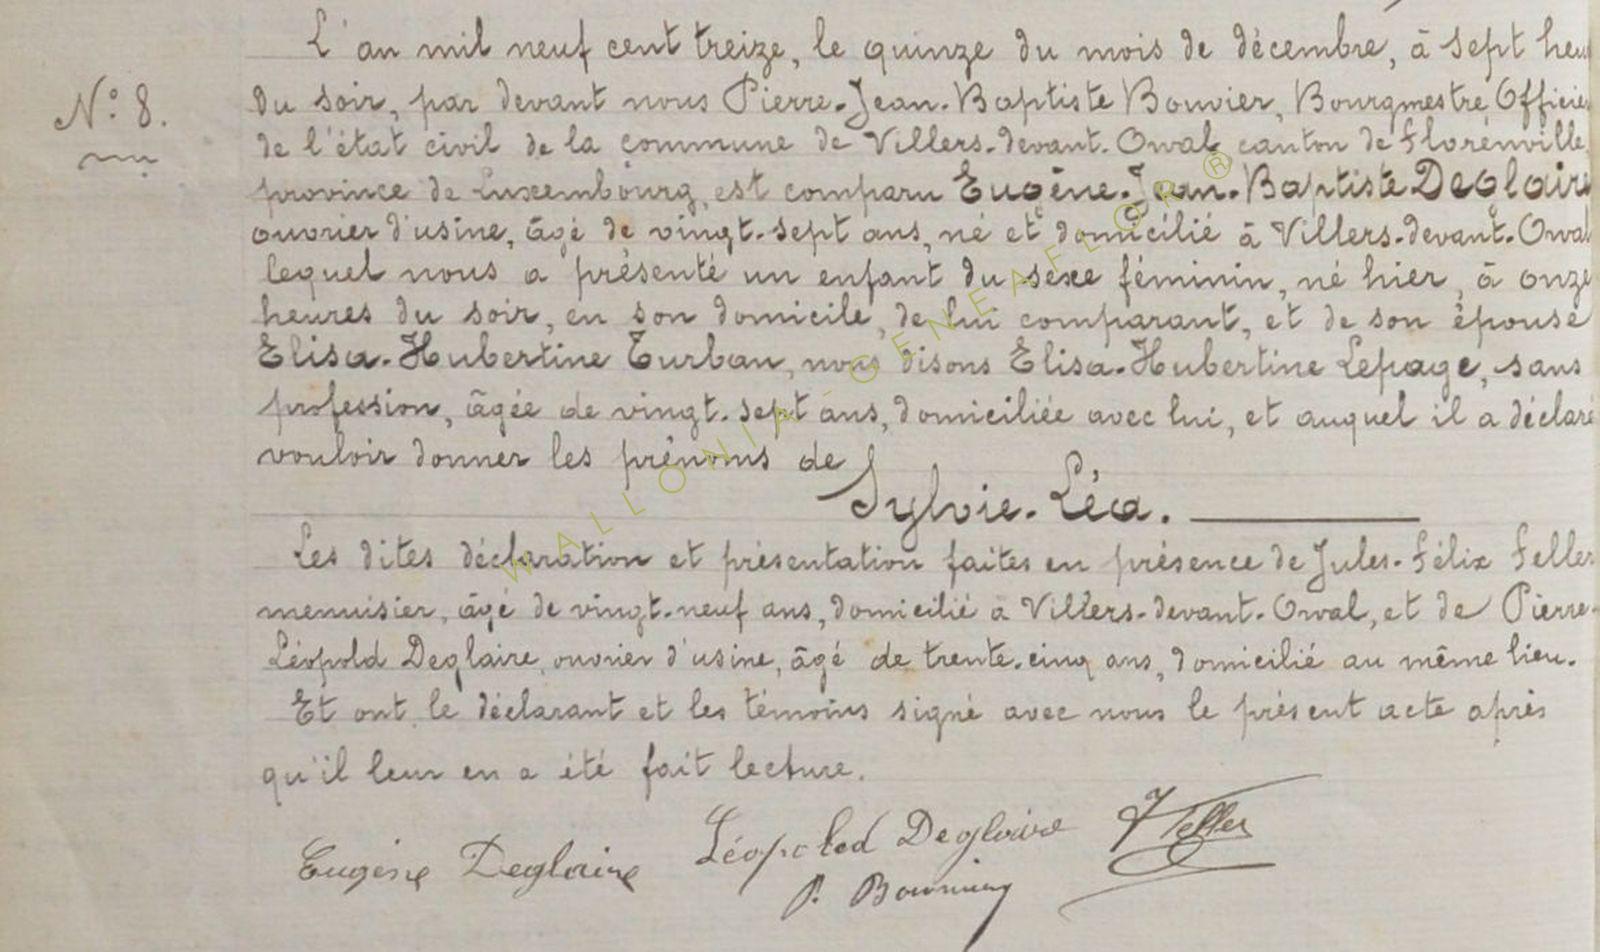 L'an mil neuf cent treize, le quinze du mois de décembre, à sept heu
N° 8.
du soir, par devant nous Pierre-Jean-Baptiste Bouvier, Bourgmestre Officie
de l'état civil de la commune de Villers-devant-Orval canton de Florenville,
province de Luxembourg, est comparu Eugène-Jean-Baptiste Deglaire
ouvrier d'usine, âgé de vingt-sept ans, né et domicilié à Villers-devant-Orval
lequel nous a présenté un enfant du sexe féminin, né hier, à onze
heures du soir, en son domicile, de lui comparant, et de son épouse
Elisa-Hubertine Turban, nous disons Elisa-Hubertine Lepage, sans
profession, âgée de vingt-sept ans, domiciliée avec lui, et auquel il a déclaré
vouloir donner les prénoms de
Sylvie-Léa.
Les dites déclaration et présentation faites en présence de Jules-Félix Feller
menuisier, âgé de vingt-neuf ans, domicilié à Villers-devant-Orval, et de Pierre-
Léopold Deglaire, ouvrier d'usine, âgé de trente-cinq ans, domicilié au même lieu.
Et ont le déclarant et les témoins signé avec nous le présent acte après
qu'il leur en a été fait lecture.
Eugène Deglaire Léopold Deglaire JFeller
P. Bouvier
WALLONIA - GENEAFLOR ®